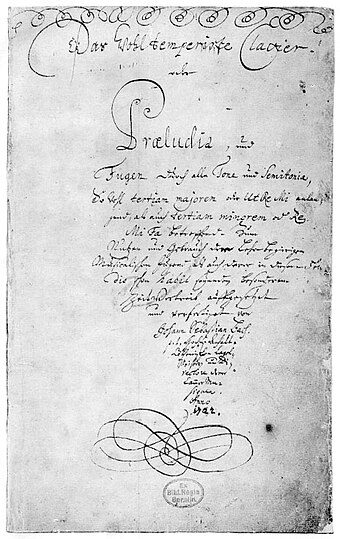 Das Wohl temperirte Clavier.
oder
Præludia, und
Fugen durch alle Tone und Semitonia,
So wohl tertiam majorem oder Ut Re Mi anlan-
gend, als auch tertiam minorem oder Re
Mi Fa betreffend. Zum
Nutzen und Gebrauch der Lehrbegierigen
Musicalischen Jugend, als auch derer in diesem stu-
dio schon habil seyenden besonderem
ZeitVertreib auffgesetzet
und verfertiget von
Johann Sebastian Bach.
p. t: Hochfürstl. Anhalt-
Cöthenischen Capel-
Meistern und Di-
rectore derer
Camer Mu-
siquen.
Anno
1722.
Ex
Bibl. Regia
Berolin.